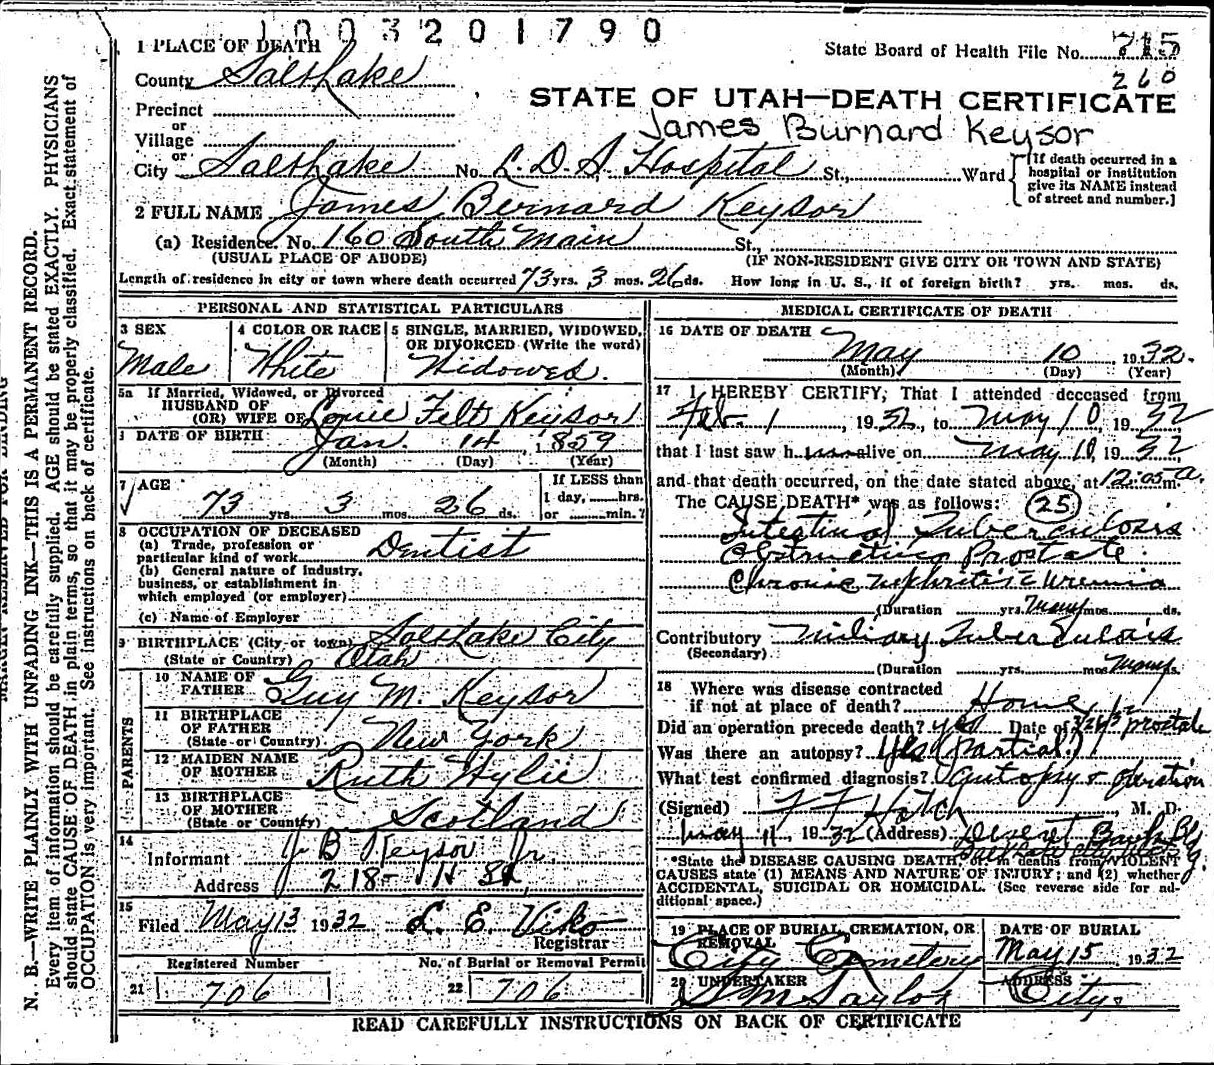 1003201790
State Board of Health File No. 715
260
STATE OF UTAH—DEATH CERTIFICATE
James Burnard Keysor
1 PLACE OF DEATH
County Salt Lake
Precinct
or
Village
or
City Salt Lake No. L. D. S. Hospital St., Ward
[If death occurred in a hospital or institution give its NAME instead of street and number.]
2 FULL NAME James Bernard Keysor
(a) Residence. No. 160 South Main St.,
(USUAL PLACE OF ABODE) (IF NON-RESIDENT GIVE CITY OR TOWN AND STATE)
Length of residence in city or town where death occurred 73 yrs. 3 mos. 26 ds. How long in U. S., if of foreign birth? yrs. mos. ds.
PERSONAL AND STATISTICAL PARTICULARS
3 SEX
Male
4 COLOR OR RACE
White
5 SINGLE, MARRIED, WIDOWED, OR DIVORCED (Write the word)
Widowed.
5a If Married, Widowed, or Divorced
HUSBAND OF
(OR) WIFE OF Louie Felt Keysor
DATE OF BIRTH Jan. 14, 1859
(Month) (Day) (Year)
7 AGE
73 yrs. 3 mos. 26 ds.
If LESS than
1 day, hrs.
or min.?
8 OCCUPATION OF DECEASED
(a) Trade, profession or
particular kind of work Dentist
(b) General nature of Industry,
business, or establishment in
which employed (or employer)
(c) Name of Employer
9 BIRTHPLACE (City or town) Salt Lake City
(State or Country) Utah
PARENTS
10 NAME OF
FATHER Guy M. Keysor
11 BIRTHPLACE
OF FATHER
(State or Country) New York
12 MAIDEN NAME
OF MOTHER Ruth Hylie
13 BIRTHPLACE
OF MOTHER
(State or Country) Scotland
14
Informant J B Keysor Jr.
Address 218-
15
Filed May 13 1932 L. E. Viko
Registrar
Registered Number No. of Burial or Removal Permit
21 706 22 706
MEDICAL CERTIFICATE OF DEATH
16 DATE OF DEATH
May 10, 1932.
(Month) (Day) (Year)
17 I HEREBY CERTIFY, That I attended deceased from
Feb. 1, 1932, to May 10, 1932
that I last saw him alive on May 10, 1932
and that death occurred, on the date stated above, at 12:05 m. a.
The CAUSE DEATH* was as follows: 25
Intestinal Tuberculosis
Obstructing Prostate
Chronic nephritis c uremia
(Duration yrs. Many mos. ds.
Contributory Miliary Tuberculosis
(Secondary)
(Duration yrs. mos. Many ds.
18 Where was disease contracted
if not at place of death? Home
Did an operation precede death? yes Date of prostate
Was there an autopsy? Yes (Partial)
What test confirmed diagnosis? autopsy & operation
(Signed) F F Hatch, M. D.
May 11, 1932 (Address) Deseret Bank Bldg.
*State the DISEASE CAUSING DEATH, or in deaths from VIOLENT
CAUSES state (1) MEANS AND NATURE OF INJURY; and (2) whether
ACCIDENTAL, SUICIDAL OR HOMICIDAL. (See reverse side for ad-
ditional space.)
19 PLACE OF BURIAL, CREMATION, OR REMOVAL
City Cemetery
DATE OF BURIAL
May 15, 1932
20 UNDERTAKER
S M Taylor
ADDRESS
City.
READ CAREFULLY INSTRUCTIONS ON BACK OF CERTIFICATE
N. B.—WRITE PLAINLY WITH UNFADING INK—THIS IS A PERMANENT RECORD.
Every item of information should be carefully supplied. AGE should be stated EXACTLY. PHYSICIANS
should state CAUSE OF DEATH in plain terms, so that it may be properly classified. Exact statement of
OCCUPATION is very important. See instructions on back of certificate.